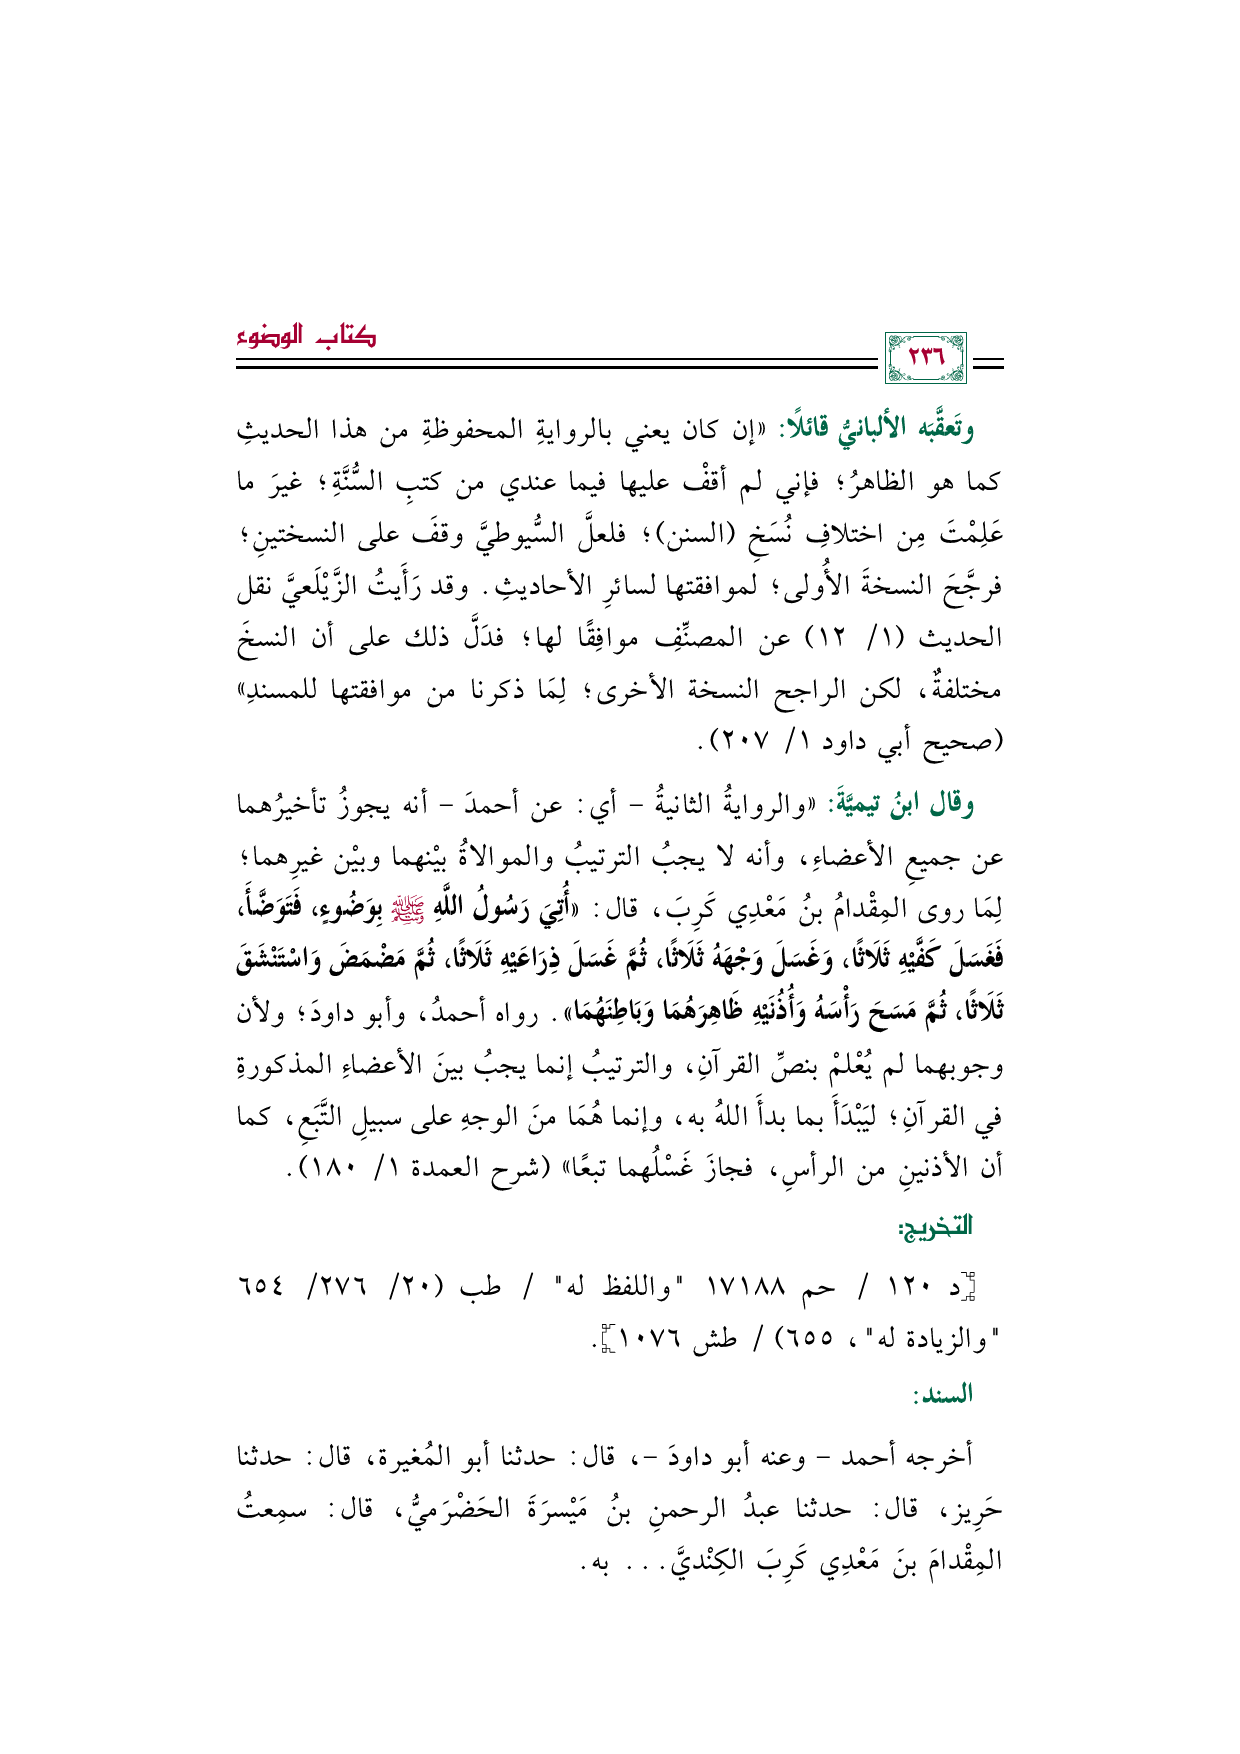 كتاب الوضوء
٢٣٦
وتَعقَّبَه الألبانيُّ قائلًا: «إن كان يعني بالروايةِ المحفوظةِ من هذا الحديثِ
كما هو الظاهرُ؛ فإني لم أقفْ عليها فيما عندي من كتبِ السُّنَّةِ؛ غيرَ ما
عَلِمْتَ مِن اختلافِ نُسَخِ (السنن)؛ فلعلَّ السُّيوطيَّ وقفَ على النسختينِ؛
فرجَّحَ النسخةَ الأُولى؛ لموافقتها لسائرِ الأحاديثِ. وقد رَأَيتُ الزَّيْلَعيَّ نقل
الحديث (١/ ١٢) عن المصنِّفِ موافِقًا لها؛ فدَلَّ ذلك على أن النسخَ
مختلفةٌ، لكن الراجح النسخة الأخرى؛ لِمَا ذكرنا من موافقتها للمسندِ»
(صحيح أبي داود ١/ ٢٠٧).
وقال ابنُ تيميَّةَ: «والروايةُ الثانيةُ – أي: عن أحمدَ – أنه يجوزُ تأخيرُهما
عن جميعِ الأعضاءِ، وأنه لا يجبُ الترتيبُ والموالاةُ بيْنهما وبيْن غيرِهما؛
لِمَا روى المِقْدامُ بنُ مَعْدِي كَرِبَ، قال: «أُتِيَ رَسُولُ اللَّهِ ﷺ بِوَضُوءٍ، فَتَوَضَّأَ،
فَغَسَلَ كَفَّيْهِ ثَلَاثًا، وَغَسَلَ وَجْهَهُ ثَلَاثًا، ثُمَّ غَسَلَ ذِرَاعَيْهِ ثَلَاثًا، ثُمَّ مَضْمَضَ وَاسْتَنْشَقَ
ثَلَاثًا، ثُمَّ مَسَحَ رَأْسَهُ وَأُذُنَيْهِ ظَاهِرَهُمَا وَبَاطِنَهُمَا». رواه أحمدُ، وأبو داودَ؛ ولأن
وجوبهما لم يُعْلمْ بنصِّ القرآنِ، والترتيبُ إنما يجبُ بينَ الأعضاءِ المذكورةِ
في القرآنِ؛ ليَبْدَأَ بما بدأَ اللهُ به، وإنما هُمَا منَ الوجهِ على سبيلِ التَّبَعِ، كما
أن الأذنينِ من الرأسِ، فجازَ غَسْلُهما تبعًا» (شرح العمدة ١/ ١٨٠).
التخريج:
[د ١٢٠ / حم ١٧١٨٨ "واللفظ له" / طب (٢٠/ ٢٧٦/ ٦٥٤
"والزيادة له"، ٦٥٥) / طش ١٠٧٦].
السند:
أخرجه أحمد – وعنه أبو داودَ –، قال: حدثنا أبو المُغيرة، قال: حدثنا
حَرِيز، قال: حدثنا عبدُ الرحمنِ بنُ مَيْسرَةَ الحَضْرَميُّ، قال: سمِعتُ
المِقْدامَ بنَ مَعْدِي كَرِبَ الكِنْديَّ... به.